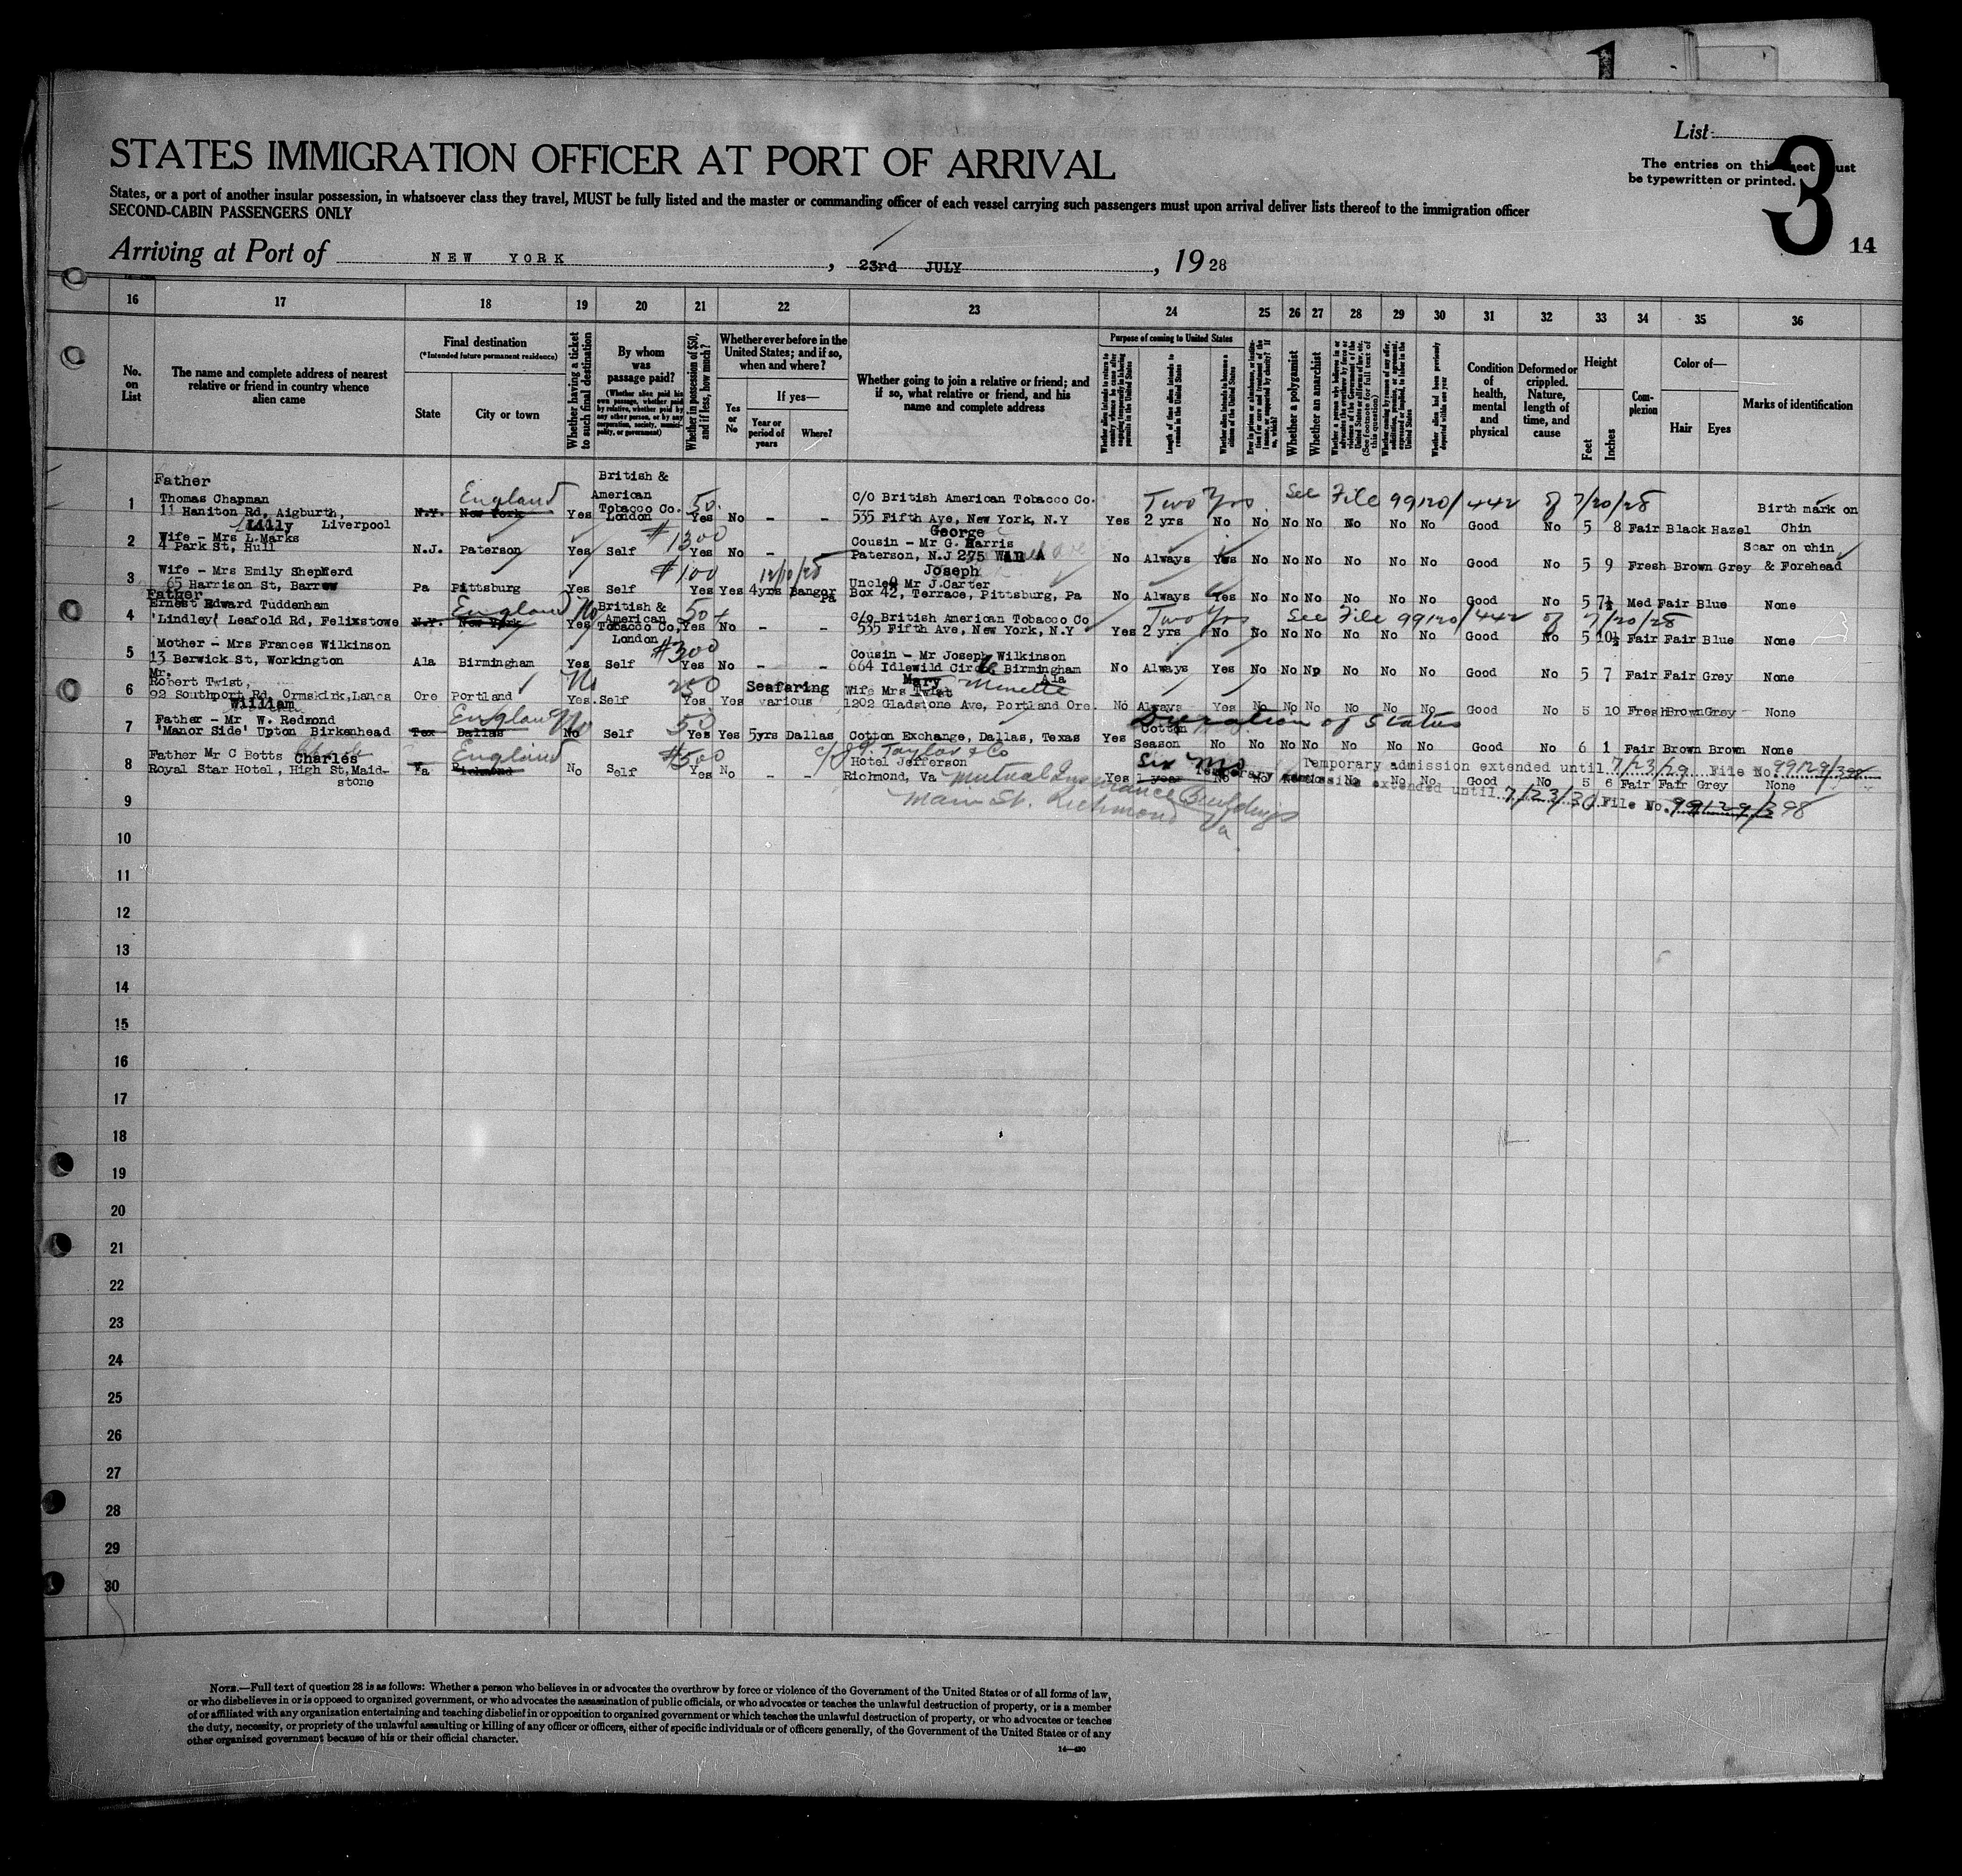 1
List
3
The entries on this sheet must
be typewritten or printed.
STATES IMMIGRATION OFFICER AT PORT OF ARRIVAL
States, or a port of another insular possession, in whatsoever class they travel, MUST be fully listed and the master or commanding officer of each vessel carrying such passengers must upon arrival deliver lists thereof to the immigration officer
SECOND-CABIN PASSENGERS ONLY
14
Arriving at Port of NEW YORK, 23rd JULY, 1928
16 17 18 19 20 21 22 23 24 25 26 27 28 29 30 31 32 33 34 35 36
No. on List
The name and complete address of nearest relative or friend in country whence alien came
Final destination
(*Intended future permanent residence)
State
City or town
Whether having a ticket to such final destination
By whom was passage paid?
(Whether alien paid his own passage, whether paid by relative, whether paid by any other person, or by any corporation, society, municipality, or government)
Whether in possession of $50, and if less, how much?
Whether ever before in the United States; and if so, when and where?
Yes or No
If yes—
Year or period of years
Where?
Whether going to join a relative or friend; and if so, what relative or friend, and his name and complete address
Purpose of coming to United States
Length of time alien intends to remain in the United States
Whether alien intends to become a citizen of the United States
Whether a polygamist
Whether an anarchist
Whether alien had been previously deported within one year
Condition of health, mental and physical
Deformed or crippled. Nature, length of time, and cause
Height
Feet
Inches
Complexion
Color of—
Hair
Eyes
Marks of identification
1
Father
Thomas Chapman
11 Haniton Rd, Aigburth,
Liverpool
N.Y. New York England
Yes
British &
American
Tobacco Co.
London
50
Yes No – –
C/O British American Tobacco Co.
535 Fifth Ave, New York, N.Y
Two Yrs. See File 99120/442 of 7/20/28
Yes 2 yrs No No No No No No No Good No 5 8 Fair Black Hazel
Birth mark on
Chin
2
Lilly
Wife – Mrs L.Marks
4 Park St, Hull
N.J. Paterson Yes Self
$1300
Yes No –
George
Cousin – Mr G. Harris
Paterson, N.J 275
No Always Yes No No No No No No Good No 5 9 Fresh Brown Grey
Scar on chin
& Forehead
3
Wife – Mrs Emily Shepherd
65 Harrison St, Barrow
Pa Pittsburg Yes Self
$100
Yes Yes 4yrs Bangor
Pa
12/10/25
Joseph
Uncle Mr J.Carter
Box 42, Terrace, Pittsburg, Pa
No Always Yes No No No No No No Good No 5 7½ Med Fair Blue None
4
Father
Ernest Edward Tuddenham
'Lindley' Leafold Rd, Felixstowe
N.Y. New York England
No Yes
British &
American
Tobacco Co.
London
50+
Yes No – –
C/o British American Tobacco Co
535 Fifth Ave, New York, N.Y
Two Yrs See File 99120/442 of 7/20/28
Yes 2 yrs No No No No No No No Good No 5 10½ Fair Fair Blue None
5
Mother – Mrs Frances Wilkinson
13 Berwick St, Workington
Ala Birmingham Yes Self
$300
Yes No – –
Cousin – Mr Joseph Wilkinson
664 Idlewild Circle Birmingham
Ala
No Always Yes No No No No No No Good No 5 7 Fair Fair Grey None
6
Mr.
Robert Twist,
92 Southport Rd, Ormskirk,Lancs
Ore Portland
No Yes. Self
250
Yes Yes
Seafaring
various
Mary Minette
Wife Mrs Twist
1202 Gladstone Ave, Portland Ore.
No Always Yes No No No No No No Good No 5 10 Fresh Brown Grey None
7
William
Father – Mr W. Redmond
'Manor Side' Upton Birkenhead
Tex Dallas England
No No Self
50
Yes Yes 5yrs Dallas
Cotton Exchange, Dallas, Texas
Duration of Status
Yes Cotton
Season No No No No No No No Good No 6 1 Fair Brown Brown None
8
Charles
Father Mr C Betts
Royal Star Hotel, High St,Maid-
stone
Va Richmond England
No Self
$500
Yes No – –
c/o J.P. Taylor & Co
Hotel Jefferson
Richmond, Va Mutual Insurance Buildings
Main St. Richmond Va
Six Mos
Temporary admission extended until 7/23/29 File No. 99129/398
Yes 1 year No No No No No No No Good No 5 6 Fair Fair Grey None
extended until 7/23/30 File No. 99129/398
9
10
11
12
13
14
15
16
17
18
19
20
21
22
23
24
25
26
27
28
29
30
NOTE.—Full text of question 28 is as follows: Whether a person who believes in or advocates the overthrow by force or violence of the Government of the United States or of all forms of law,
or who disbelieves in or is opposed to organized government, or who advocates the assassination of public officials, or who advocates or teaches the unlawful destruction of property, or is a member
of or affiliated with any organization entertaining and teaching disbelief in or opposition to organized government or which teaches the unlawful destruction of property, or who advocates or teaches
the duty, necessity, or propriety of the unlawful assaulting or killing of any officer or officers, either of specific individuals or of officers generally, of the Government of the United States or of any
other organized government because of his or their official character.
14—430